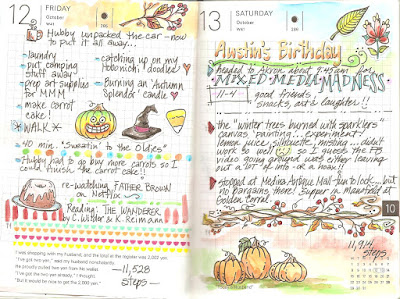 12 FRIDAY
October
Hubby unpacked the car - now
to put it all away...
laundry
put camping
stuff away
prep art supplies
for MMM
make carrot
cake!
*WALK*
catching up on my
"Hobonichi" doodles
Burning an "Autumn
Splendor" candle
40 min. "Sweatin' to the Oldies"
Hubby had to go buy more carrots so I
could finish the carrot cake!!
re-watching FATHER BROWN
on Netflix
Reading: THE WANDERER
by C. Wittler & K. Reimann
"I was shopping with my husband, and the total at the register was 2,002 yen.
"I've got two yen," said my husband nonchalantly.
He proudly pulled two yen from the wallet.
"I've got the two yen already," I thought.
"But it would be nice to get the 2,000 yen."
11,528
steps
13 SATURDAY
October
Austin's Birthday
headed to Akron about 9:45am for
MIXED MEDIA MADNESS
11-4
good friends,
snacks, art & laughter!!
the "winter trees burned with sparklers"
canvas "painting"... experiment!
lemon juice, silhouette, misting... didn't
work so well I guess the FB
video going around was either leaving
out a lot of info - or a hoax!
stopped at Medina Antique Mall - fun to look - but
no bargains there! Supper in Mansfield at
Golden Corral
10
11,914
steps